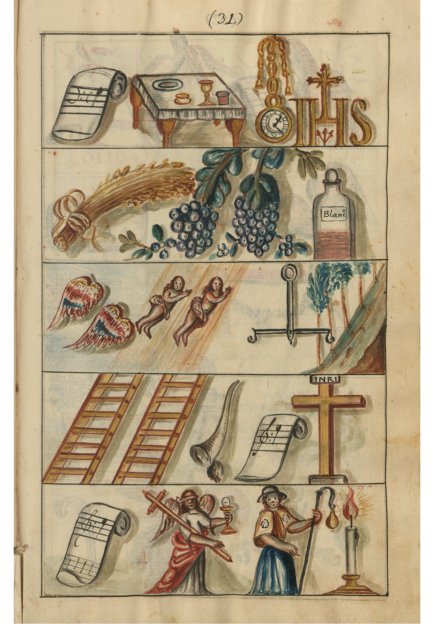 (31)
IHS
Blanc
INRI